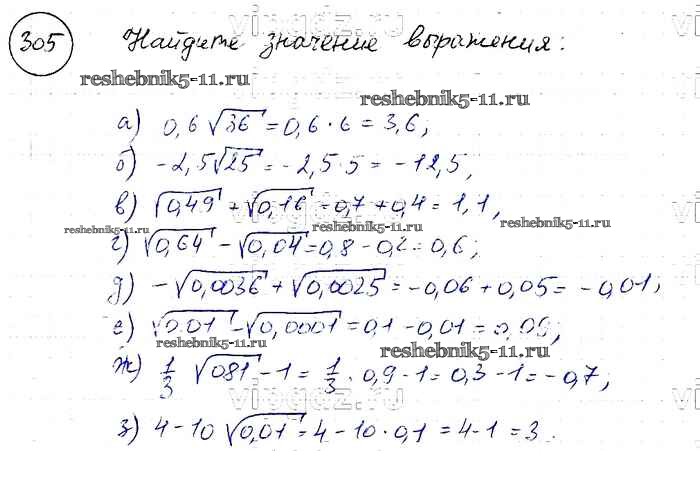 305 Найдите значение выражения:
reshebnik5-11.ru
reshebnik5-11.ru
а) 0,6 √36 = 0,6 · 6 = 3,6;
б) -2,5√25 = -2,5·5 = -12,5,
в) √0,49 + √0,16 = 0,7 + 0,4 = 1,1,
reshebnik5-11.ru reshebnik5-11.ru reshebnik5-11.ru
г) √0,64 - √0,04 = 0,8 - 0,2 = 0,6;
д) -√0,0036 + √0,0025 = -0,06 + 0,05 = -0,01;
е) √0,01 - √0,0001 = 0,1 - 0,01 = 0,09;
reshebnik5-11.ru
ж) 1/3 √081 - 1 = 1/3 · 0,9 - 1 = 0,3 - 1 = -0,7;
з) 4 - 10 √0,01 = 4 - 10 · 0,1 = 4 - 1 = 3.